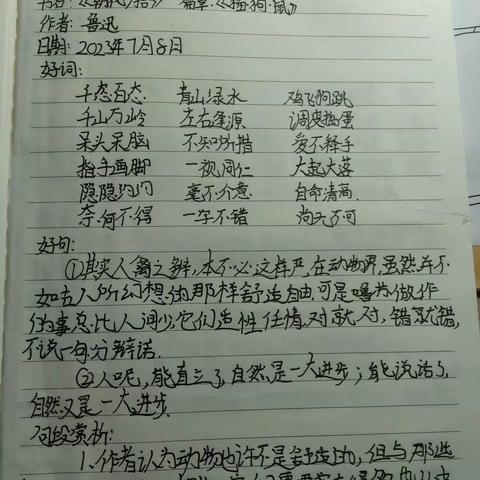 书名:《朝花夕拾》 篇章:《狗·猫·鼠》
作者: 鲁迅
日期: 2023年7月8日
好词:
千态百态 青山绿水 鸡飞狗跳
千山万岭 左右逢源 调皮捣蛋
呆头呆脑 不知所措 爱不释手
指手画脚 一视同仁 大起大落
隐隐约约 毫不介意 自命清高
奈何不得 一字不错 尚无不可
好句:
①其实人禽之辨,本不必这样严,在动物界,虽然并不
如古人所幻想的那样舒适自由,可是噜苏做作
的事总比人间少,它们适性任情,对就对,错就错,
不说一句分辩话.
②人呢,能直立了,自然是一大进步;能说话了,
自然又是一大进步.
句段赏析:
1.作者认为动物也许不是舒适的,但与那些